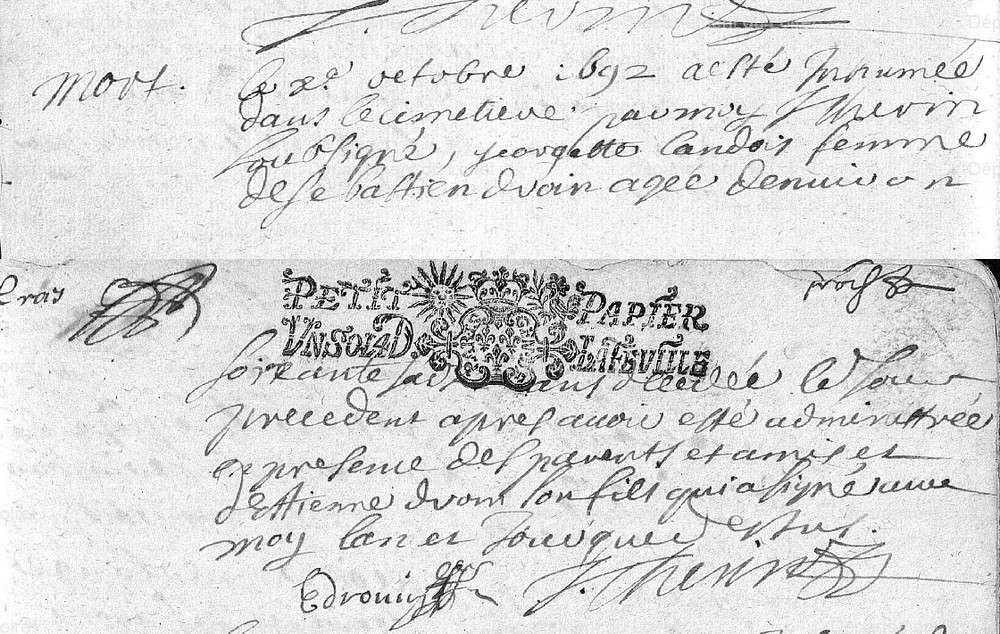 Mort.
le xe octobre 1692 a esté Inhumée
dans le cimetiere par moy J Thevin
soubsigné, georgette landois femme
de sebastien drouin agee denuiron
PETIT PAPIER
UN SOL A D. LA FEUILLE
soixante ans decedée le Jour
precedent apres auoir esté administrée
en presence des parents et amis et
d'Estienne drouin son fils qui a signé auec
moy les an et Jour que dessus.
Edrouin J. Thevin